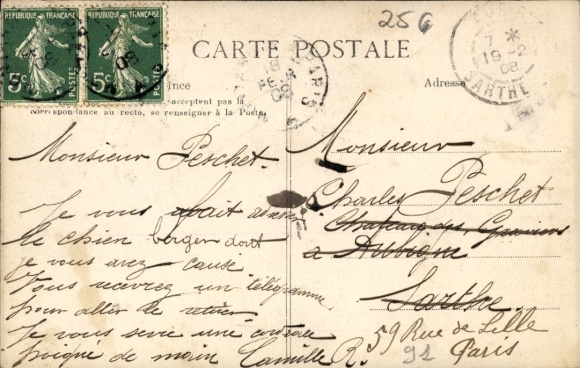 256
RÉPUBLIQUE FRANÇAISE
5c
POSTES
RÉPUBLIQUE FRANÇAISE
5c
POSTES
CARTE POSTALE
7 *
19 - 2
08
SARTHE
PARIS
08
nce
Adresse
acceptent pas la
correspondance au recto, se renseigner à la Poste.
Monsieur Peschet.
Je vous
le chien berger dont
je vous avez causé.
Vous recevrez un télégramme
pour aller de
Je vous serre une cordiale
poigné de main Camille R.
Monsieur
Charles Peschet
Chateau des
à Aubigné
Sarthe
59 Rue de Lille
91 Paris